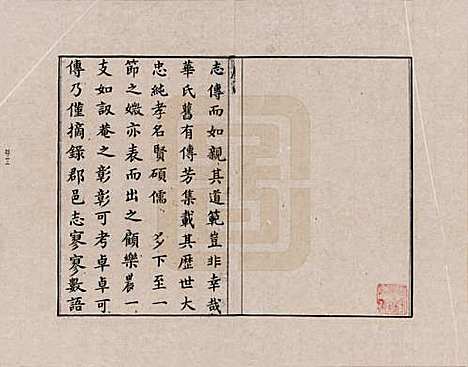 志傳而如親其道範豈非幸哉
華氏舊有傳芳集載其歷世大
忠純孝名賢碩儒 下至一
節之媺亦表而出之顧樂農一
支如訒菴之彰彰可考卓卓可
傳乃僅摘錄郡邑志寥寥數語